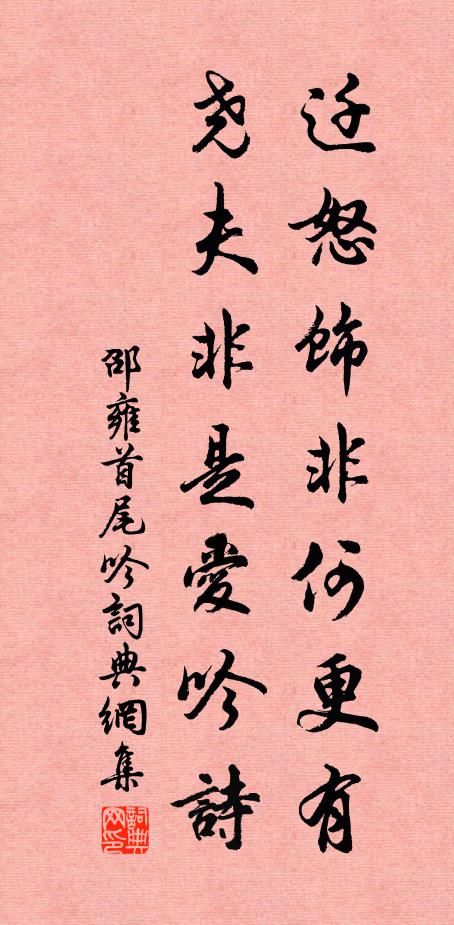 迁怒饰非何更有
尧夫非是愛吟詩
邵雍首尾吟詞典網集
詞典网印